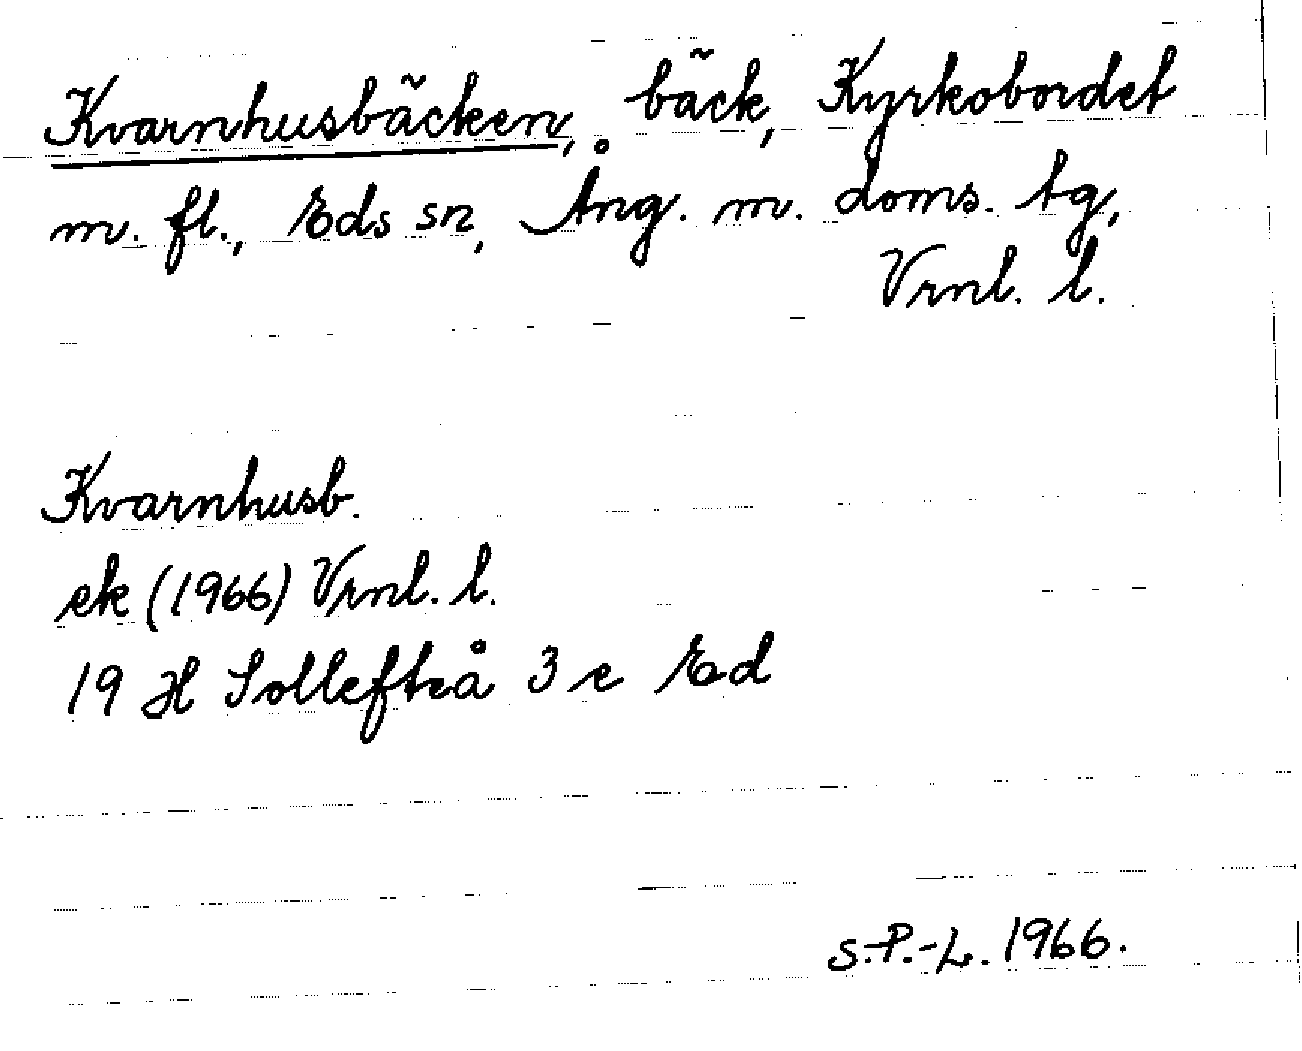 Kvarnhusbäcken, bäck, Kyrkobordet
m. fl., Eds sn, Ång. m. doms. tg,
Vrnl. l.
Kvarnhusb.
ek (1966) Vrnl. l.
19 H Sollefteå 3 c Ed
S.P.-L. 1966.